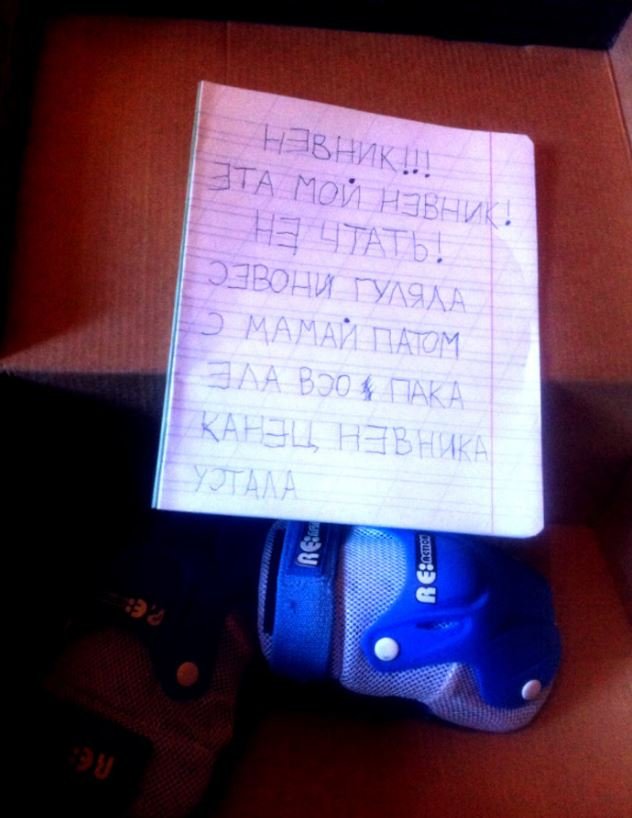 НЭВНИК!!!
ЭТА МОЙ НЭВНИК!
НЕ ЧТАТЬ!
СЕВОНИ ГУЛЯЛА
С МАМАЙ ПАТОМ
ЭЛА ВСО ПАКА
КАНЭЦ НЭВНИКА
УСТАЛА
RE:ACTION
RE:ACTION
RE:
RE: